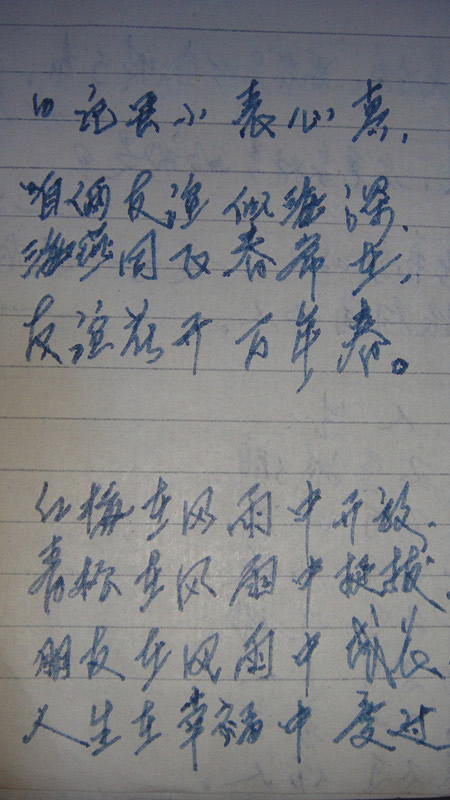 日记虽小表心意,
咱俩友谊似海深.
海燕同飞春常在,
友谊花开百年春。
红梅在风雨中开放.
青松在风雨中挺拔.
朋友在风雨中成长
人生在幸福中度过